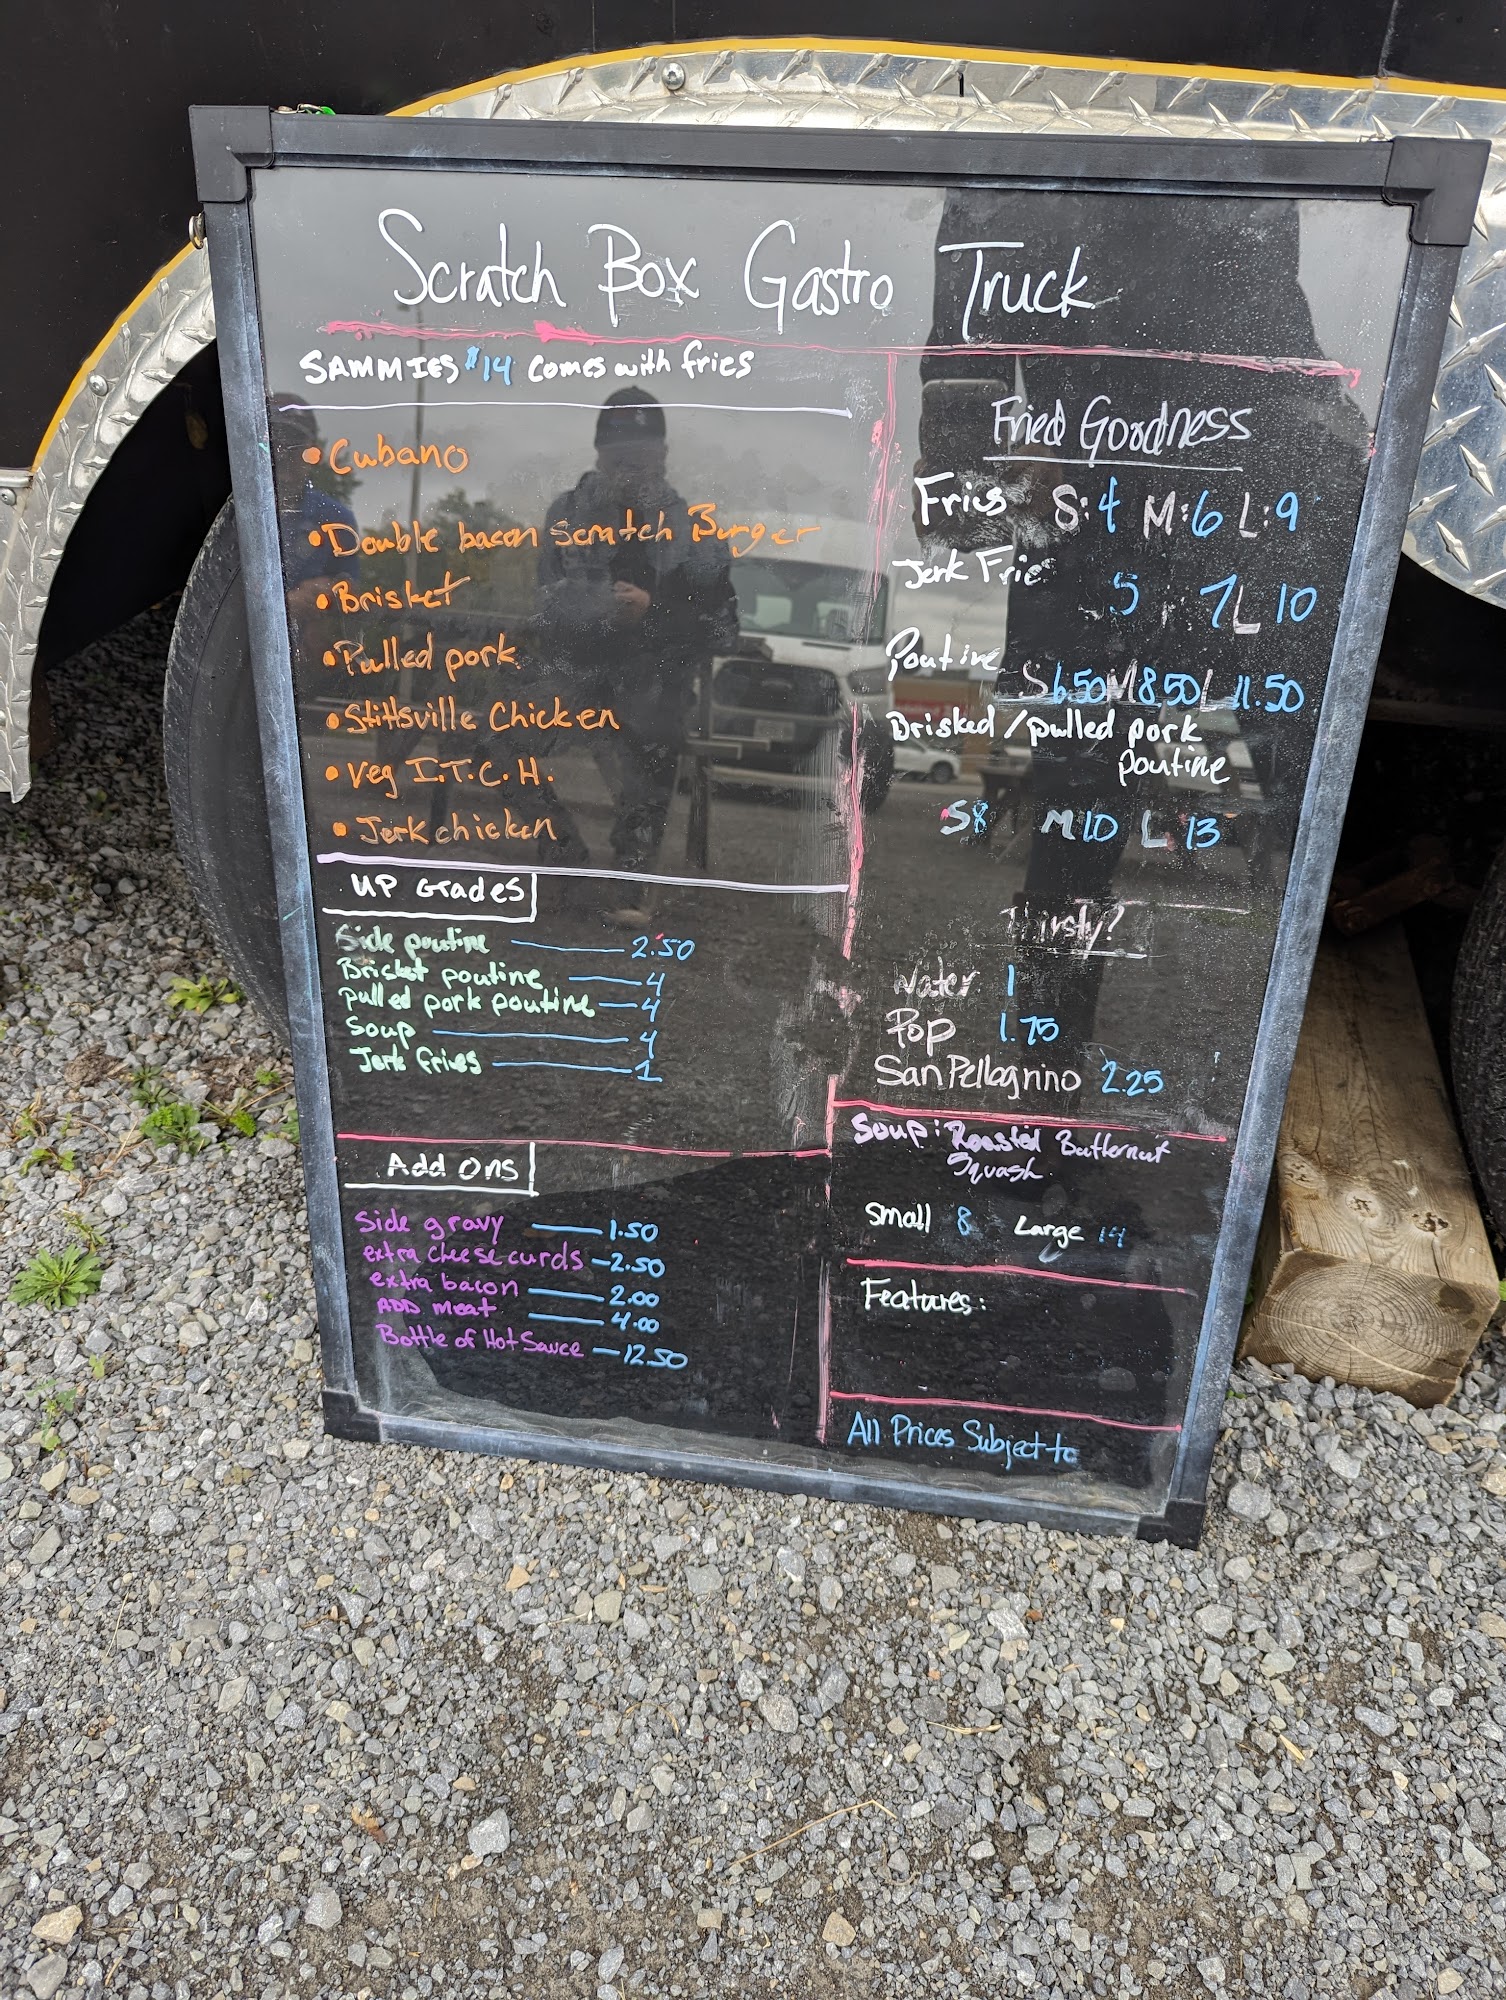 Scratch Box Gastro Truck
SAMMIES $14 comes with fries
• Cubano
• Double bacon Scratch Burger
• Brisket
• Pulled pork
• Stittsville Chicken
• Veg I.T.C.H.
• Jerk chicken
UP Grades
Side poutine 2.50
Brisket poutine 4
pulled pork poutine 4
Soup 4
Jerk fries 1
Add Ons
Side gravy 1.50
extra cheese curds 2.50
extra bacon 2.00
ADD meat 4.00
Bottle of Hot Sauce 12.50
Fried Goodness
Fries S: 4 M: 6 L: 9
Jerk Fries 5 7 L 10
Poutine
S 6.50 M 8.50 L 11.50
Brisked / pulled pork
poutine
S 8 M 10 L 13
Thirsty?
Water 1
Pop 1.75
San Pellegrino 2.25
Soup: Roasted Butternut
Squash
Small 8 Large 14
Features:
All Prices Subject to